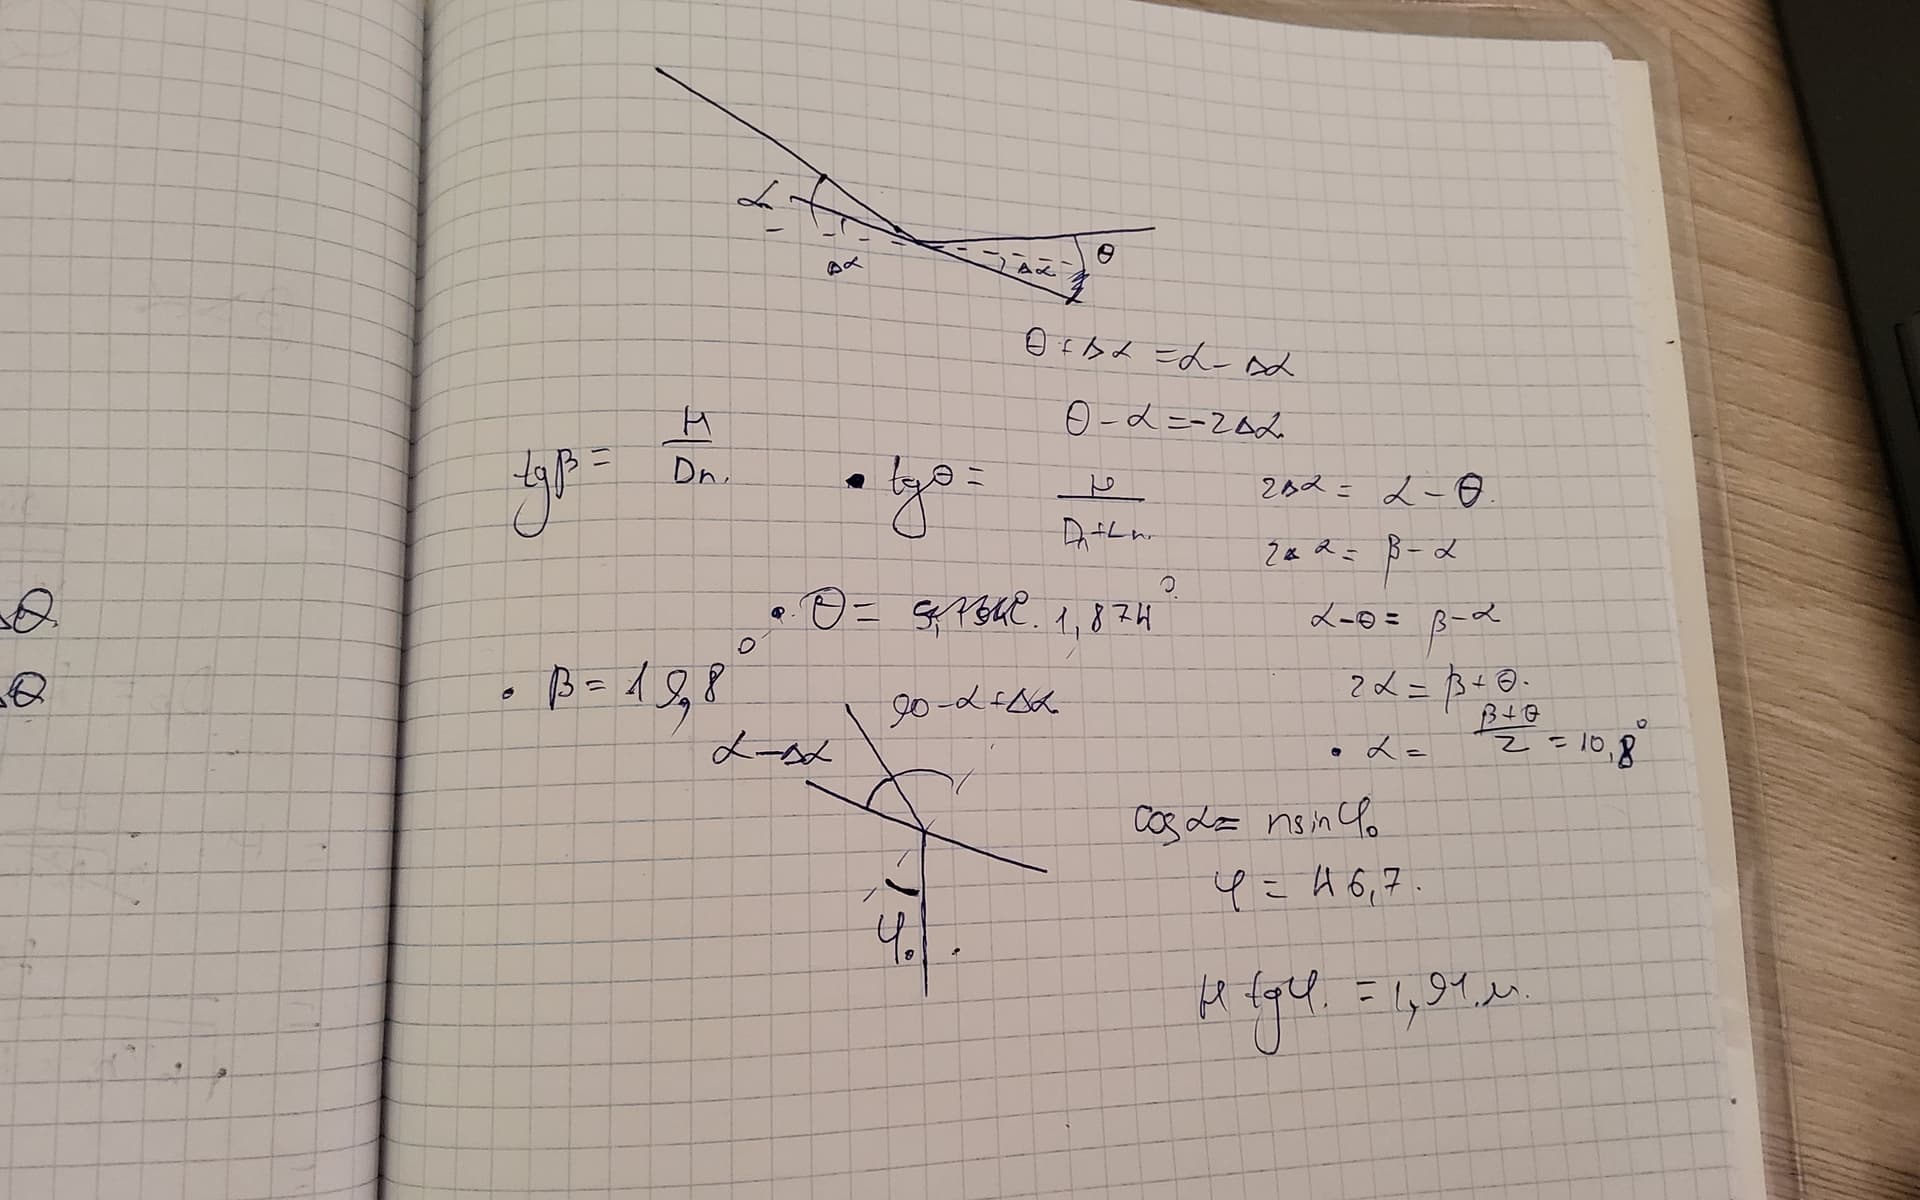 α
Δα
Δα
θ
θ + Δα = α - Δα
θ - α = -2Δα
tgβ = H / Dn.
• tgθ = H / Dn+Ln.
2Δα = α - θ.
2Δα = β - α
• θ = 1,874°
α - θ = β - α
• β = 19,8°
2α = β + θ.
• α = β+θ / 2 = 10,8°
90 - α + Δα
α - Δα
φ₀
cosα = n sinφ₀
φ = 46,7.
H tgφ. = 1,91.м.
θ
θ